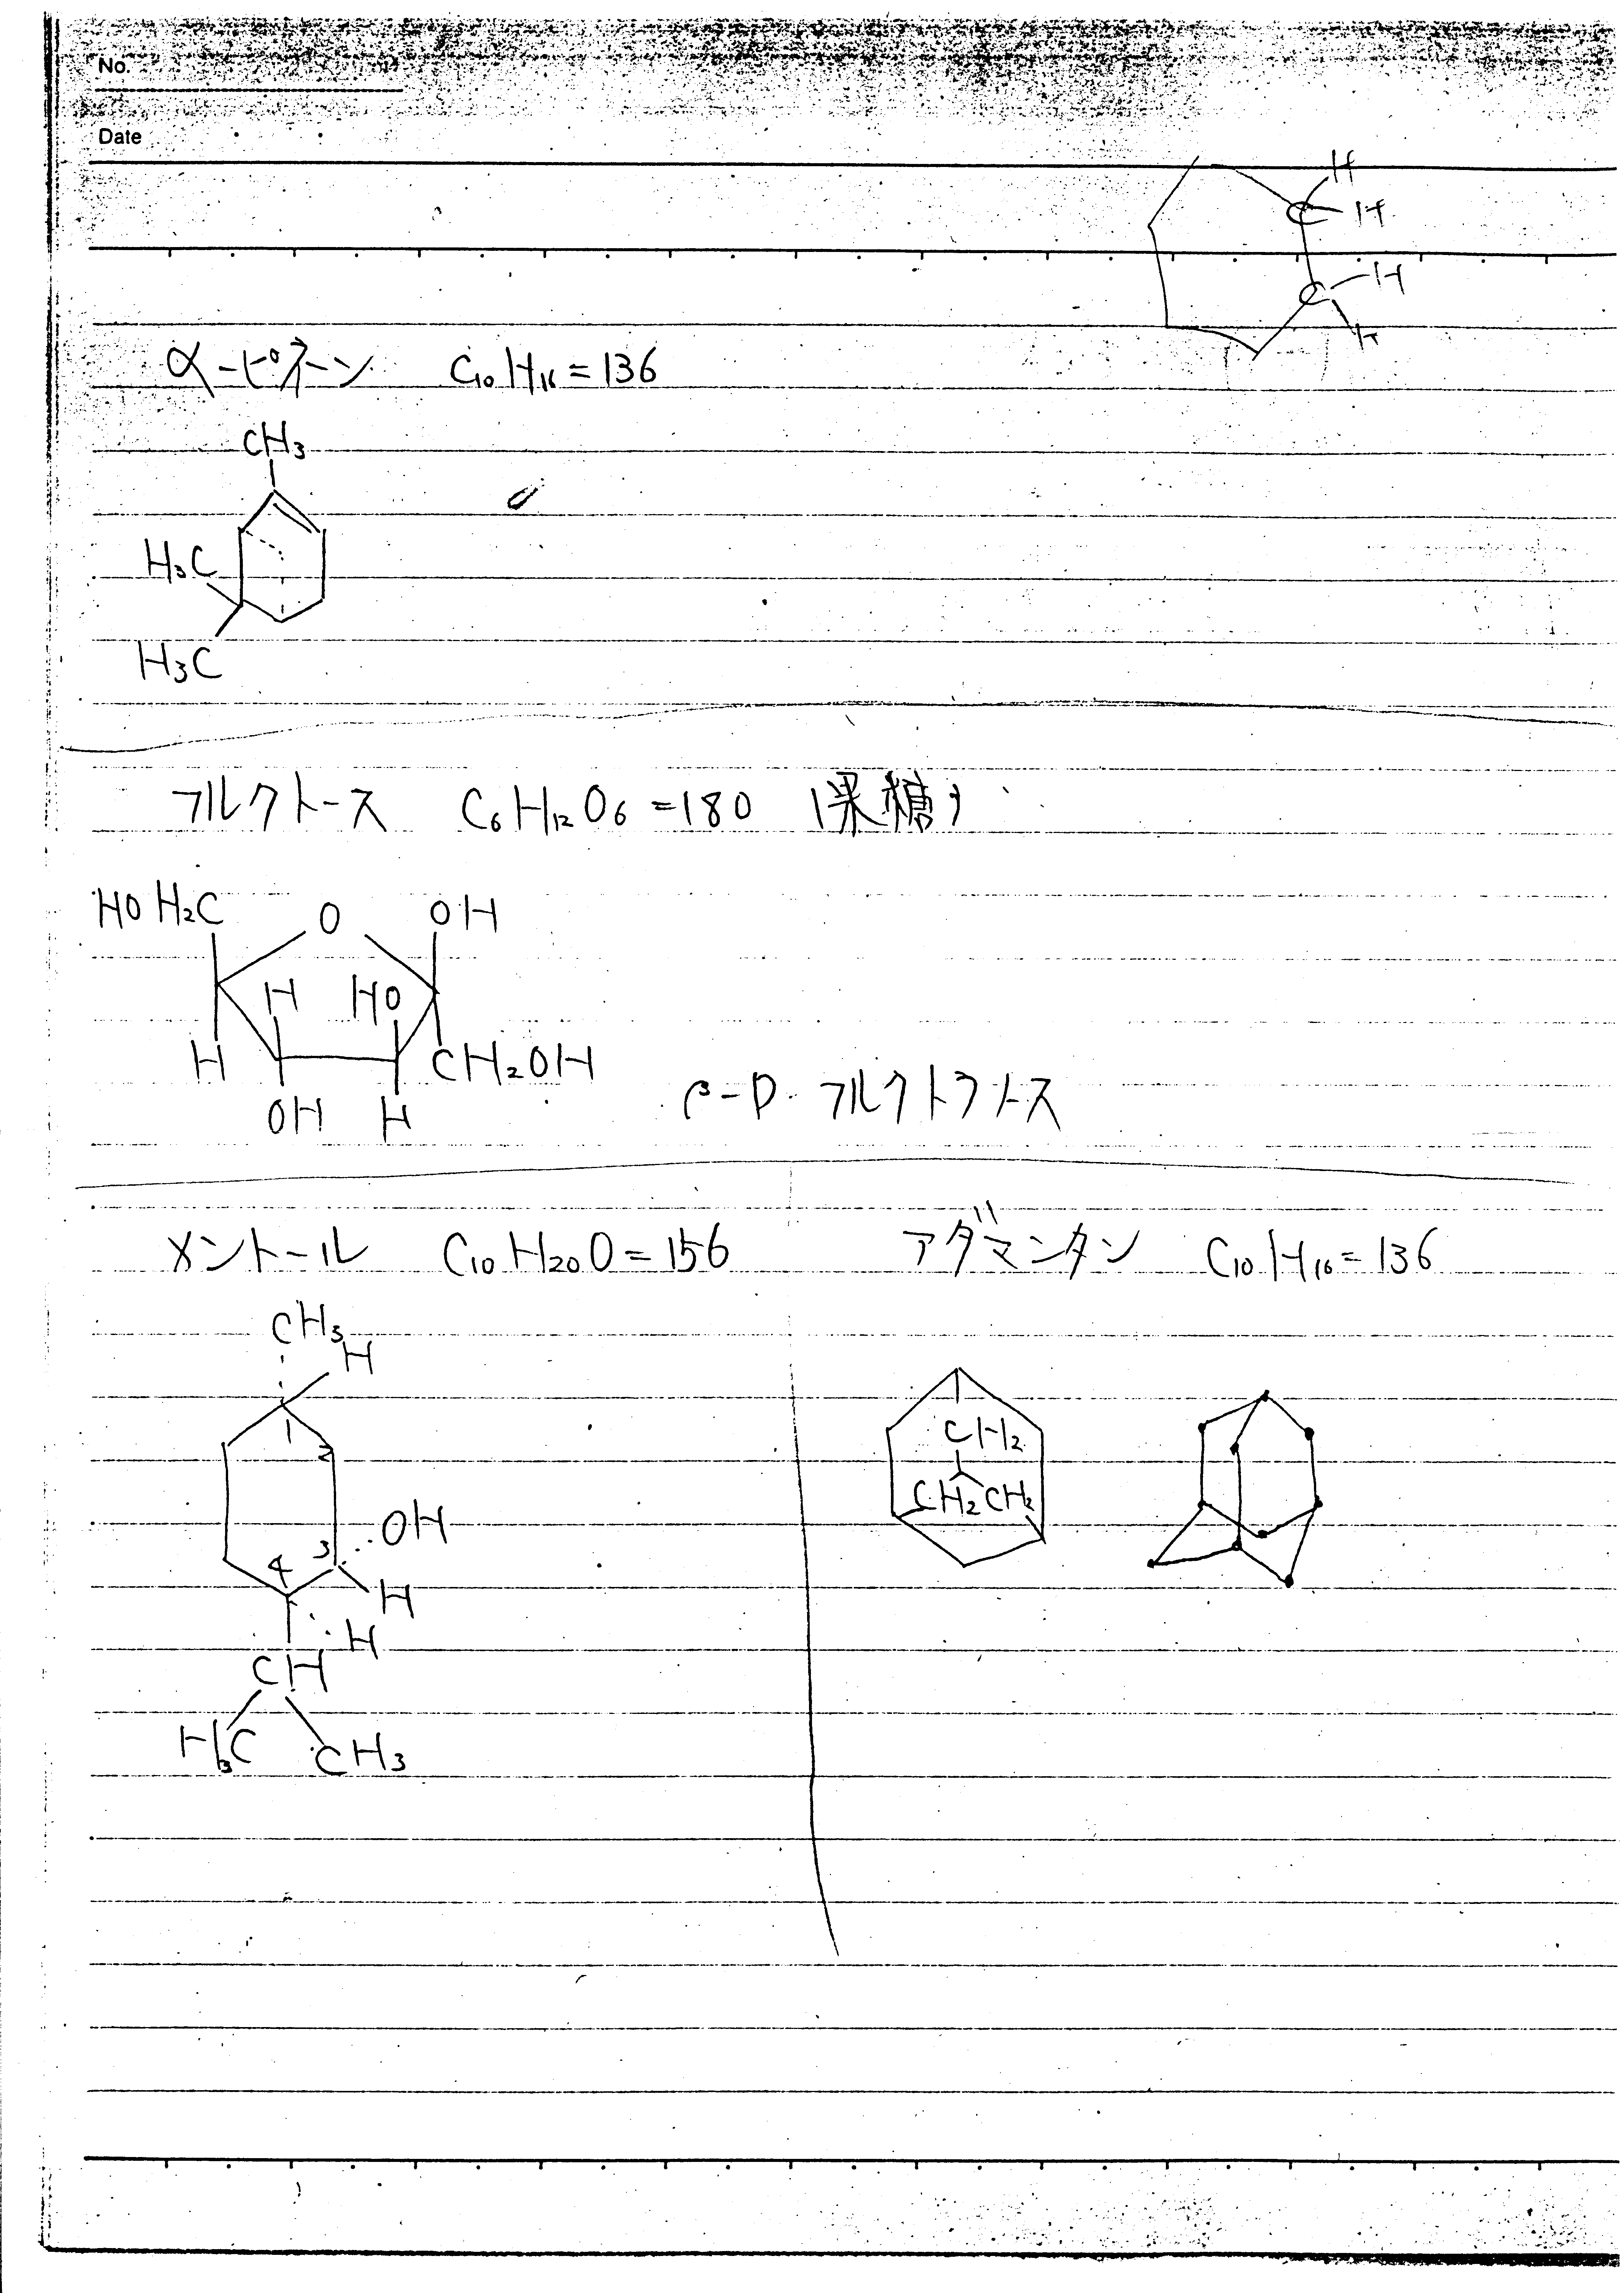 No.
Date
H
C H
C H
H
α-ピネーン C₁₀H₁₆=136
CH₃
H₃C
H₃C
フルクトース C₆H₁₂O₆=180 (果糖)
HOH₂C O OH
H HO
H CH₂OH
OH H
β-D-フルクトフラノース
メントール C₁₀H₂₀O=156
CH₃
H
1
2
OH
3
4
H
H
CH
H₃C CH₃
アダマンタン C₁₀H₁₆=136
CH₂
CH₂ CH₂